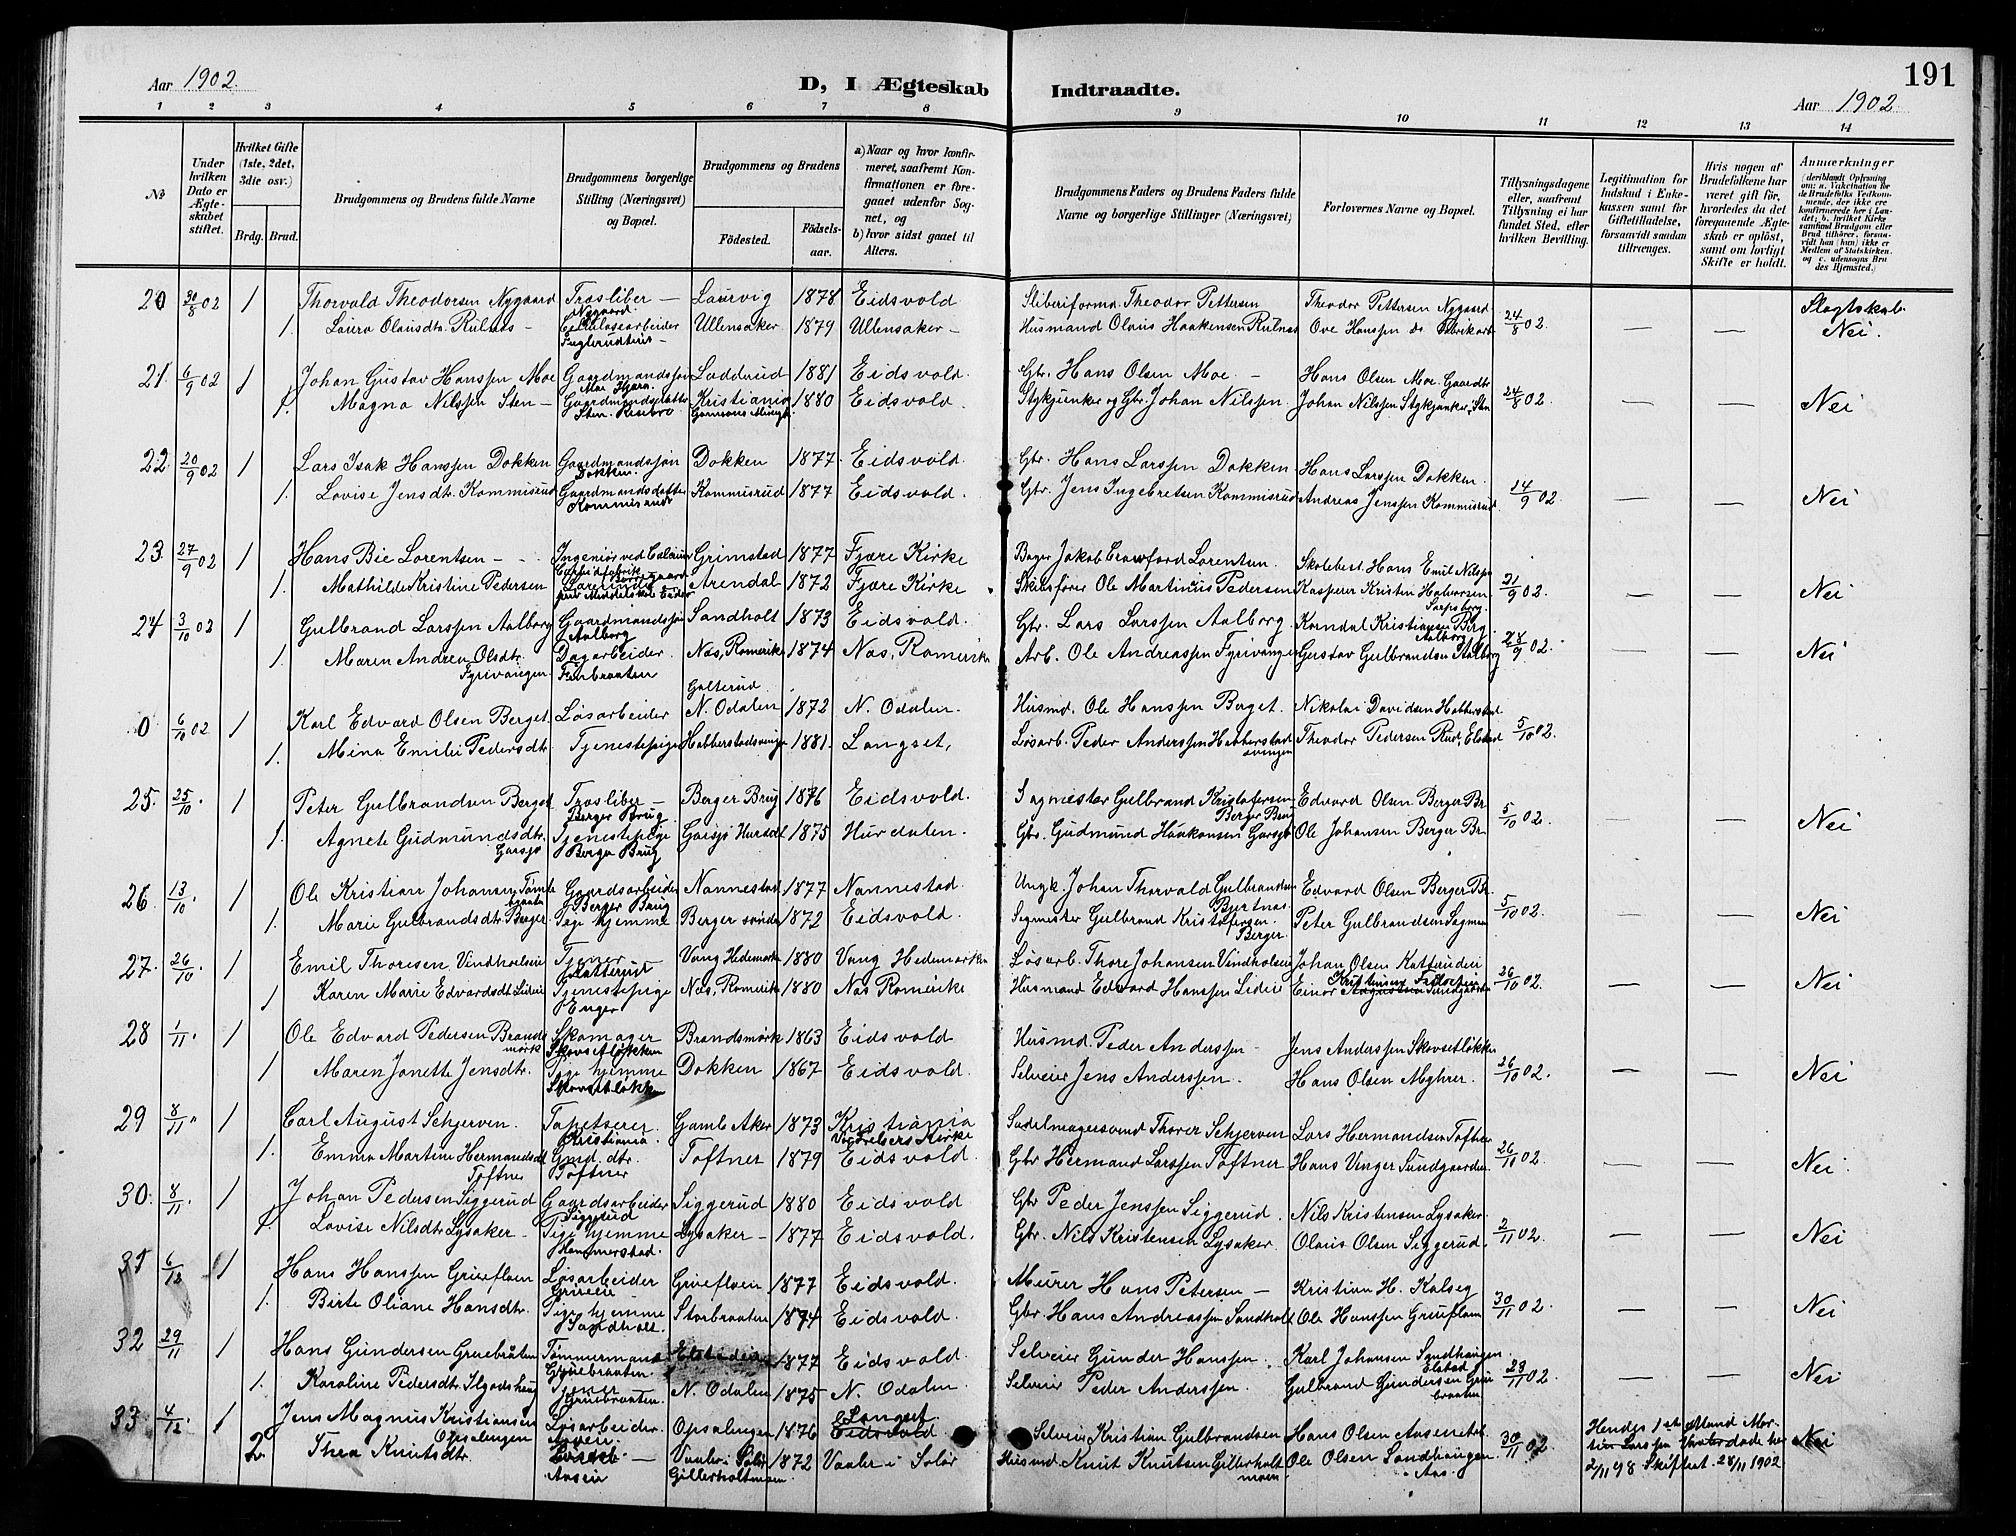 Aar 1902. D, I Ægteskab Indtraadte. 191
Aar 1902.
1 2 3 4 5 6 7 8 9 10 11 12 13 14
No
Under hvilken Dato er Ægteskabet stiftet.
Hvilket Gifte (1ste, 2det, 3die osv.)
Brdg. Brud.
Brudgommens og Brudens fulde Navne
Brudgommens borgerlige Stilling (Næringsvei) og Bopæl.
Brudgommens og Brudens
Fødested. Fødselsaar.
a) Naar og hvor konfirmeret, saafremt Konfirmationen er foregaaet udenfor Sognet, og
b) hvor sidst gaaet til Alters.
Brudgommens Faders og Brudens Faders fulde Navne og borgerlige Stillinger (Næringsvei)
Forlovernes Navne og Bopæl.
Tillysningsdagene eller, saafremt Tillysning ei har fundet Sted, efter hvilken Bevilling.
Legitimation for Indskud i Enkekassen samt for Giftetilladelse, forsaavidt saadan tiltrænges.
Hvis nogen af Brudefolkene har været gift før, hvorledes da det foregaaende Ægteskab er opløst, samt om lovligt Skifte er holdt.
Anmærkninger
20 30/8 02 1 Thorvald Theodorsen Nygaard Træsliber — Nygaard Laurvig 1878 Eidsvold Sliberiformd. Theodor Pettersen Theodor Pettersen Nygaard 24/8 02. — — Slægtskab. Nei.
1. Laura Olausdtr. Rulnes — Ullensaker 1879 Ullensaker — Husmand Olaus Haakensen Rulnes Ove Hanssen
21. 6/9 02 1 Johan Gustav Hanssen Moe Gaardmandssøn Moe Lødderud 1881 Eidsvold. Gbr. Hans Olsen Moe. — Hans Olsen Moe. Gaardbr 24/8 02. — — Nei
1. Magna Nilssen Sten — Gaardmandsdatter Sten Kristiania 1880 Eidsvold. Stykjunker og Gbr. Johan Nilssen Johan Nilssen Stykjunker, Sten
22 20/9 02 1 Lars Isak Hanssen Dokken Gaardmandssøn Dokken Dokken 1877. Eidsvold. Gbr. Hans Larssen Dokken Hans Larssen Dokken. 14/9 02 — — Nei
1. Lovise Jensdtr. Kommisrud Gaardmandsdatter Kommisrud Kommisrud 1877 Eidsvold. Gbr. Jens Ingebretsen Kommisrud Andreas Jenssen Kommisrud
23 27/9 02 1 Hans Bie Lorentsen — Ingeniør ved Calcium Carbidfabrik Borregaard Grimstad 1877 Fjære Kirke Bager Jakob Crawford Lorentsen. Skolebest. Hans Emil Nilssen 21/9 02. — — Nei
1. Mathilde Kristine Pedersen Lærerinde Arendal 1872 Fjære Kirke Skibsfører Ole Martinius Pedersen Kasperer Kristen Halvorsen Sarpsborg.
24 3/10 02 1 Gulbrand Larssen Aalborg Gaardmandssøn Aalborg Sandholt 1873 Eidsvold. Gbr. Lars Larssen Aalborg. Korndal Kristiansen Berg Aalborg 28/9 02. — — Nei
1. Maren Andrea Olsdtr. Fyrivangen Dagarbeider. Næs, Romerike 1874 Næs, Romerike Arb. Ole Andreassen Fyrivangen Gustav Gulbrandsen Aalborg
0 6/10 02 1 Karl Edvard Olsen Berget Løsarbeider Galterud N. Odalen 1872 N. Odalen. Husmd. Ole Hanssen Berget. Nikolai Davidsen Habberstad 5/10 02. — —
1. Mina Emilie Pedersdtr. Tjenestepige Habberstadvangen 1881. Langset, Løsarb. Peder Anderssen Habberstad vangen Theodor Pedersen Rud, Elstad
25. 25/10. 1 Peter Gulbrandsen Berget Træsliber — Berger Brug Berger Brug 1876 Eidsvold. Sagmester Gulbrand Kristofersen Berger Brug Edvard Olsen Berger Br. 5/10 02. — — Nei
1. Agnete Gudmundsdtr. Garsjø Tjenestepige Berger Brug Garsjø Hurdal 1875 Hurdalen. Gbr. Gudmund Haakonsen Garsjø Ole Johansen Berger Br.
26 13/10. 1 Ole Kristian Johansen Tømtebraaten Gaardsarbeider Berger Brug Nannestad 1877 Nannestad. Ungk. Johan Thorvald Gulbrandsen Bjertnæs Edvard Olsen Berger Br. 5/10 02. — — Nei
1. Marie Gulbrandsdtr. Berger. Pige hjemme Berger søndre 1872 Eidsvold. Sagmester Gulbrand Kristofersen. Berger. Peter Gulbrandsen Sagmes
27. 26/10. 1 Emil Thoresen Vindholseie Tjener Vang Hedemarken 1880 Vang Hedemarken Løsarb. Thore Johansen Vindholseie Johan Olsen Katterudeie 26/10 02. — — Nei
1 Karen Marie Edvardsdtr. Lideie Tjenestepige Enger Næs, Romerike 1880 Næs Romerike Husmand Edvard Hanssen Lideie Einar
28 1/11. 1 Ole Edvard Pedersen Brandsmørk Skomager Skovsetløkken Brandsmørk 1863 Eidsvold Husmd. Peder Anderssen — Jens Anderssen Skovsetløkken 26/10 02. — — Nei
1 Maren Jonette Jensdtr. Pige hjemme Skovsetløkken Dokken 1867 Eidsvold. Selveier Jens Anderssen. Hans Olsen Myhrer.
29 8/11 " 1 Carl August Schjerven. Tapetserer. Kristiania. Gaml. Aker 1873 Kristiania Sadelmagersvend Thorer Schjerven Lars Hermandsen Toftner 26/10 02. — — Nei.
1. Emma Martine Hermandsdtr Toftner Gmd. dtr. Toftner Toftner 1879 Eidsvold. Gbr Hermand Larssen Toftner Hans Vinger Sundgaarden
30. 8/11. 1 Johan Pedersen Siggerud Gaardsarbeider Siggerud Siggerud 1880 Eidsvold Gbr Peder Jenssen Siggerud. Nils Kristensen Lysaker. 2/11 02. — — Nei
1. Lovise Nilsdtr. Lysaker — Pige hjemme Hammerstad. Lysaker — 1877 Eidsvold. Gbr. Nils Kristensen Lysaker. Olaus Olsen Siggerud.
31 6/12 1 Hans Hanssen Grueflaen Løsarbeider Grueflaen 1877 Eidsvold. Murer Hans Petersen — Kristian H. Kalseg 30/11 02. — — Nei
1. Birte Oliane Hansdtr. Pige hjemme Sandholt. Storbraaten 1874 Eidsvold. Gbr Hans Andreassen Sandholt Ole Hanssen Grueflaen
32 29/11 1 Hans Gundersen Gruebråten Tømmermand Gruebraaten. 1877 Eidsvold. Selveier Gunder Hanssen. Karl Johansen Sandhaugen Elstad 23/11 02. — — Nei
1. Karoline Pedersdtr. Tjener Gruebraaten. N. Odalen 1875 N. Odalen. Selveier Peder Anderssen. Gulbrand Gundersen Gruebraaten
33 4/12. 1 Jens Magnus Kristiansen Opsalengen Løsarbeider. Aaseie Opsalengen 1876 Langset. Eidsvold Selveier Kristian Gulbrandsen Hans Olsen Aaseneie. 30/11 02. Hendes 1st Ætmand 2/11 98 Skifteat. 28/11 1902 Nei
2. Thea Knutsdtr. Aaseie Vaaler i Solør Gillerholtmoen. 1872 Vaaler i Solør Husmd. Knut Knutsen Gillerholtmoen Ole Olsen Sandhaugen Aas.